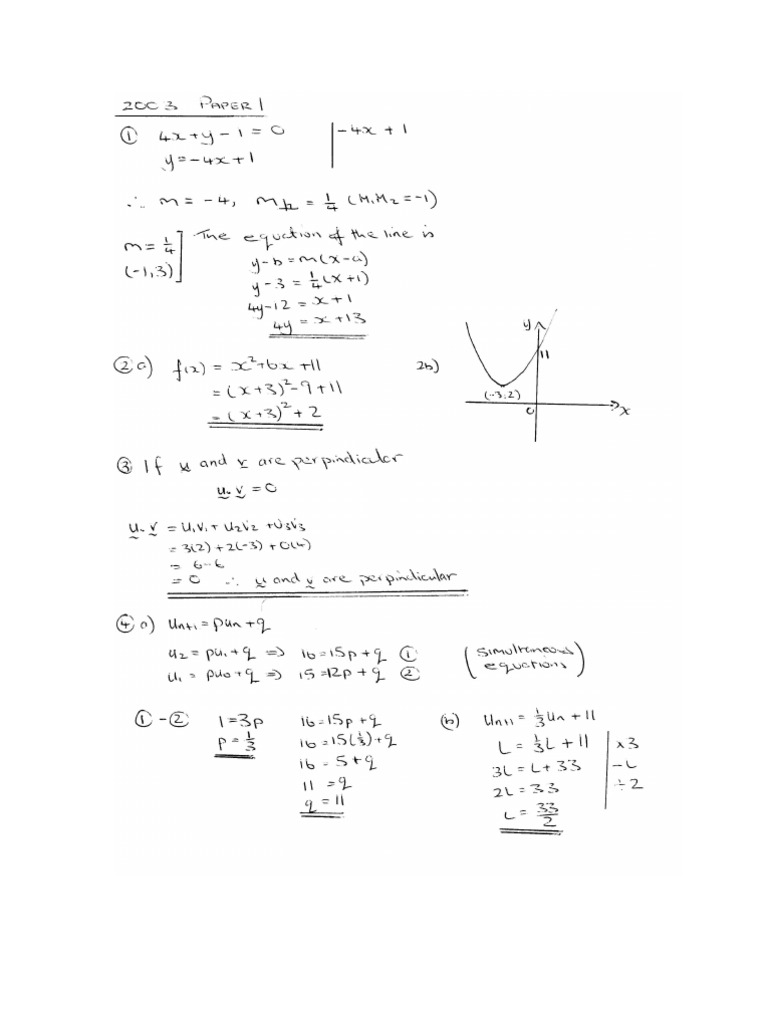 2003 PAPER 1
① 4x+y-1=0 | -4x+1
y=-4x+1
∴ m=-4, m⊥ = 1/4 (M₁M₂=-1)
m=1/4 ] The equation of the line is
(-1,3)
y-b=m(x-a)
y-3=1/4(x+1)
4y-12=x+1
4y=x+13
② a) f(x) = x²+6x+11
=(x+3)²-9+11
=(x+3)²+2
2b)
y
11
(-3,2)
0
x
③ If u and v are perpindicular
u.v=0
u.v = u₁v₁+u₂v₂+u₃v₃
=3(2)+2(-3)+0(4)
= 6-6
=0 ∴ u and v are perpindicular
④ a) Un+1=pun+q
u₂=pu₁+q => 16=15p+q ① (simultaneous
u₁=pu₀+q => 15=12p+q ② equations)
①-② 1=3p
p=1/3
16=15p+q
16=15(1/3)+q
16=5+q
11=q
q=11
(b) Un+1=1/3Un+11
L=1/3L+11 | x3
3L=L+33 | -L
2L=33 | ÷2
L=33/2